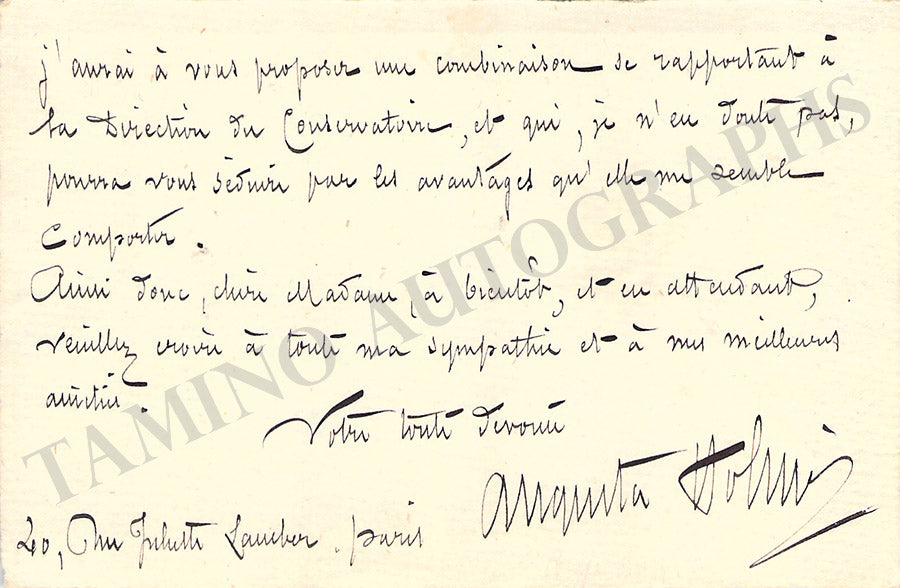 j'aurai à vous proposer une combinaison se rapportant à
la Direction du Conservatoire, et qui, je n'en doute pas,
pourra vous séduire par les avantages qu'elle me semble
comporter.
Ainsi donc, chère Madame, à bientôt, et en attendant,
veuillez croire à toute ma sympathie et à mes meilleures
amitiés.
Votre toute dévouée
Augusta Holmès
40, Rue Juliette Lamber. Paris
TAMINO AUTOGRAPHS